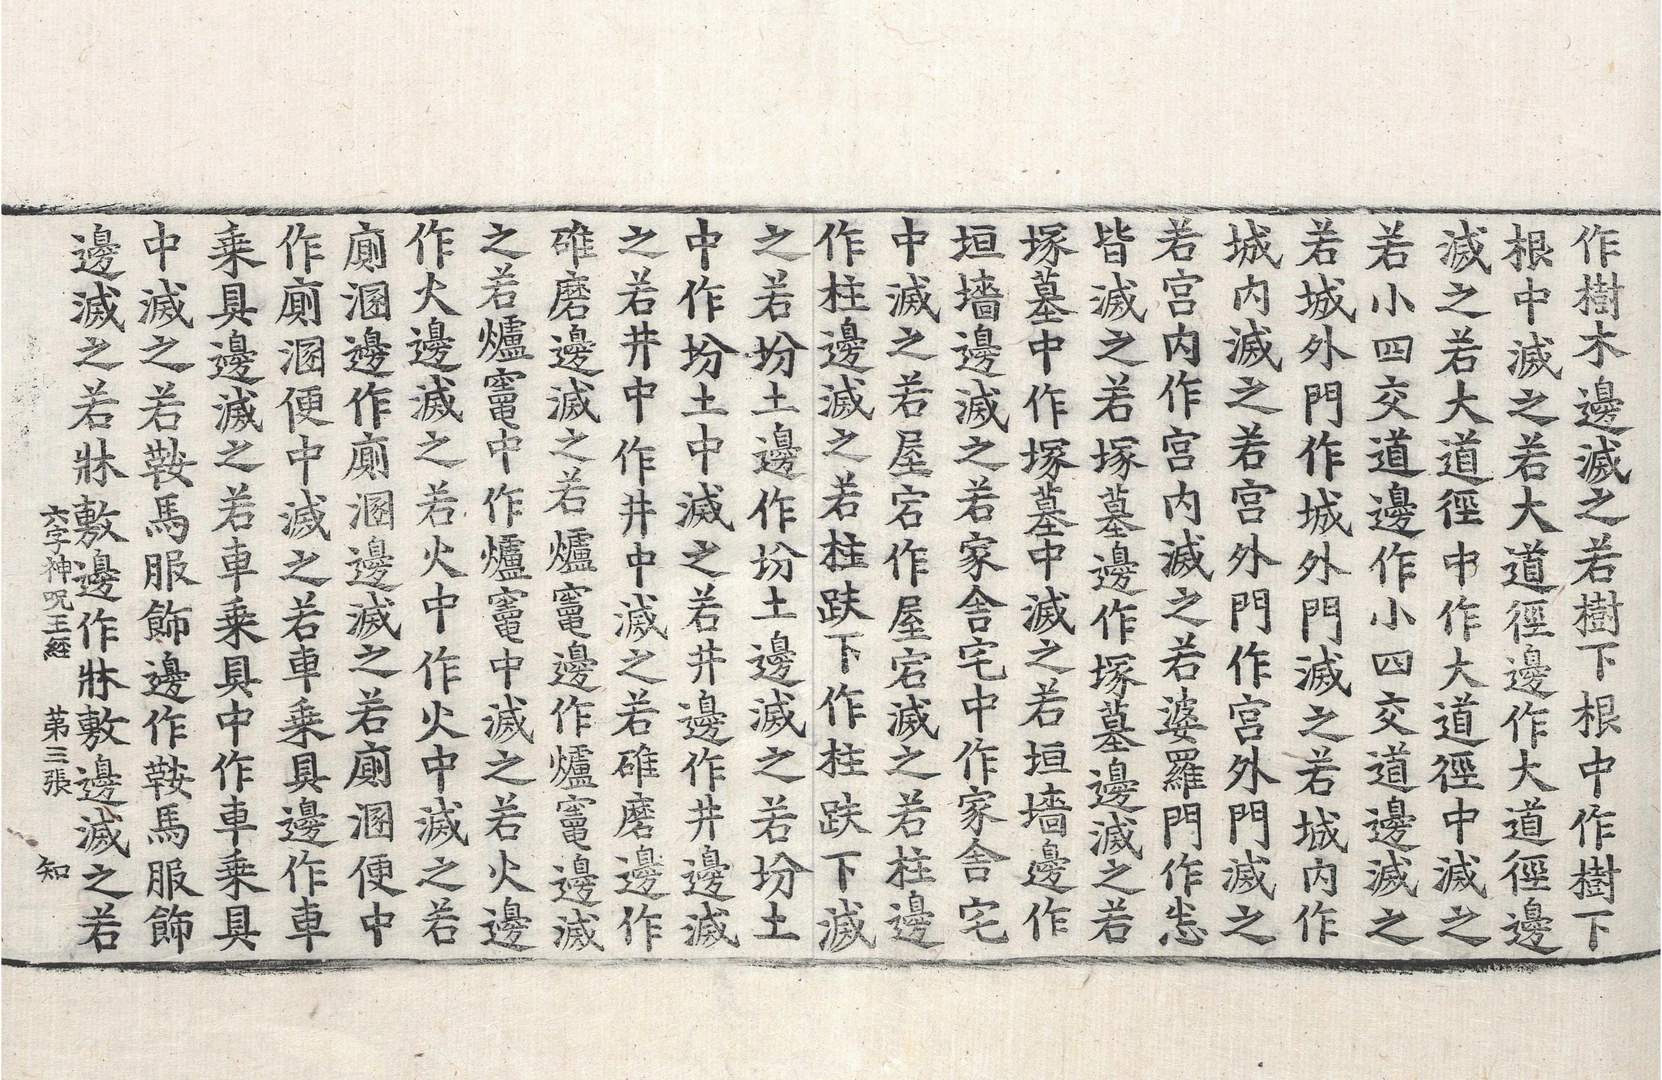 作樹木邊滅之若樹下根中作樹下
根中滅之若大道徑邊作大道徑邊
滅之若大道徑中作大道徑中滅之
若小四交道邊作小四交道邊滅之
若城外門作城外門滅之若城內作
城內滅之若宮外門作宮外門滅之
若宮內作宮內滅之若婆羅門作恙
皆滅之若塚墓邊作塚墓邊滅之若
塚墓中作塚墓中滅之若垣墻邊作
垣墻邊滅之若家舍宅中作家舍宅
中滅之若屋宕作屋宕滅之若柱邊
作柱邊滅之若柱趺下作柱趺下滅
之若坋土邊作坋土邊滅之若坋土
中作坋土中滅之若井邊作井邊滅
之若井中作井中滅之若碓磨邊作
碓磨邊滅之若爐竈邊作爐竈邊滅
之若爐竈中作爐竈中滅之若火邊
作火邊滅之若火中作火中滅之若
廁溷邊作廁溷邊滅之若廁溷便中
作廁溷便中滅之若車乘具邊作車
乘具邊滅之若車乘具中作車乘具
中滅之若鞍馬服飾邊作鞍馬服飾
邊滅之若牀敷邊作牀敷邊滅之若
六字神呪王經 第三張 知